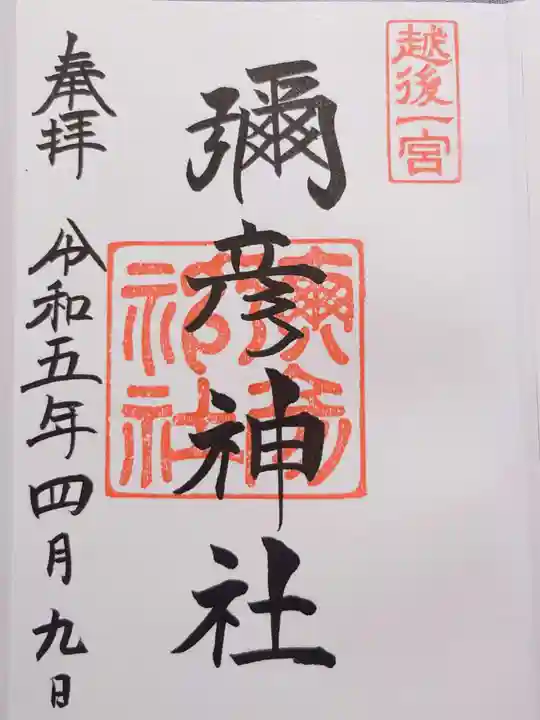 越後一宮
彌彦神社
彌彦神社
奉拝
令和五年四月九日